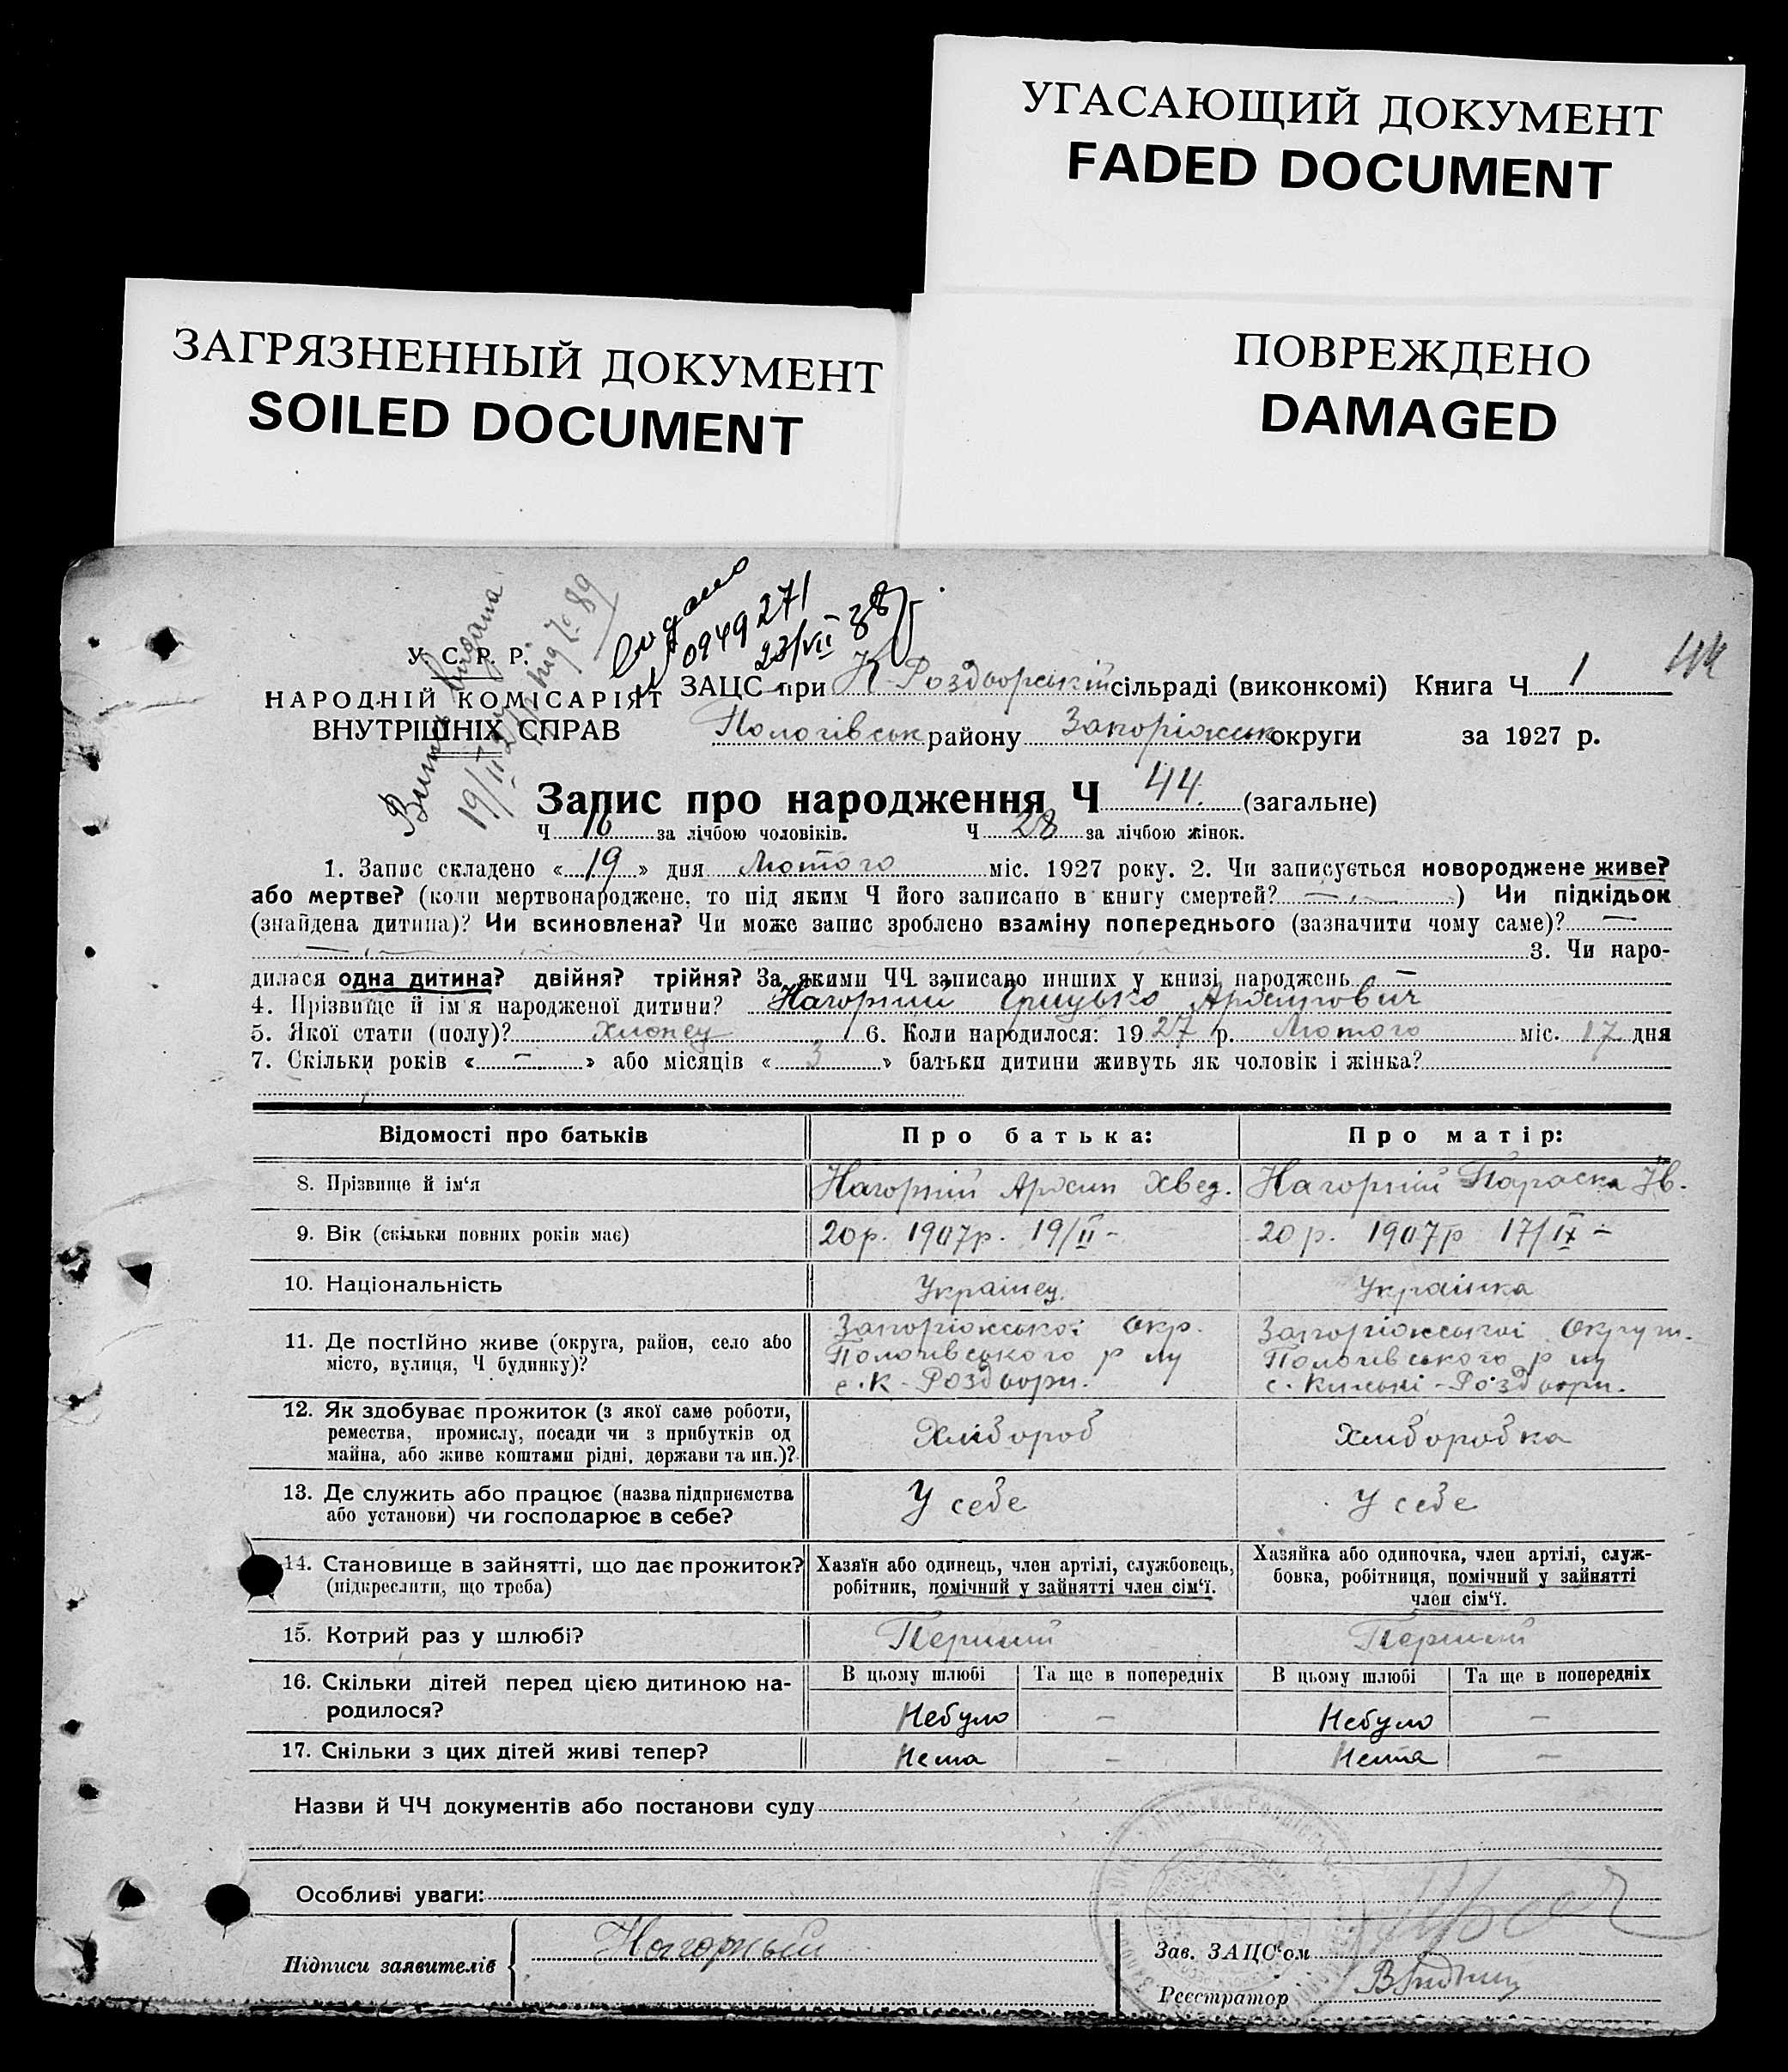 УГАСАЮЩИЙ ДОКУМЕНТ
FADED DOCUMENT
ЗАГРЯЗНЕННЫЙ ДОКУМЕНТ
SOILED DOCUMENT
ПОВРЕЖДЕНО
DAMAGED
0949271
23/VII 88
У. С. Р. Р.
НАРОДНІЙ КОМІСАРІЯТ
ВНУТРІШНІХ СПРАВ
19/II 27
44
ЗАЦС при К-Роздорській сільраді (виконкомі) Книга Ч 1
Пологівськ району Запоріжськ округи за 1927 р.
Запис про народження Ч 44. (загальне)
Ч 16 за лічбою чоловіків. Ч 28 за лічбою жінок.
1. Запис складено « 19 » дня Лютого міс. 1927 року. 2. Чи записується новороджене живе?
або мертве? (коли мертвонароджене, то під яким Ч його записано в книгу смертей? — ) Чи підкідьок
(знайдена дитина)? Чи всиновлена? Чи може запис зроблено взаміну попереднього (зазначити чому саме)? —
3. Чи наро-
дилася одна дитина? двійня? трійня? За якими ЧЧ записано инших у книзі народжень —
4. Прізвище й ім'я народженої дитини? Нагорний Грицько Архипович
5. Якої стати (полу)? хлопец 6. Коли народилося: 1927 р. Лютого міс. 17 дня
7. Скільки років « — » або місяців « 3 » батьки дитини живуть як чоловік і жінка?
Відомості про батьків Про батька: Про матір:
8. Прізвище й ім'я Нагорний Архип Хвед. Нагорній Параска Ів.
9. Вік (скільки повних років має) 20 р. 1907 р. 19/II - 20 р. 1907 р 17/IX -
10. Національність Украінец Украінка
11. Де постійно живе (округа, район, село або місто, вулиця, Ч будинку)?
Запоріжськоі Окр.
Пологівського р ну
с. К-Роздори.
Запоріжськоі Округи.
Пологівського р ну
с. Кінські-Роздори.
12. Як здобуває прожиток (з якої саме роботи,
ремества, промислу, посади чи з прибутків од
майна, або живе коштами рідні, держави та ин.)?
Хлібороб Хлиборобка
13. Де служить або працює (назва підприємства
або установи) чи господарює в себе?
У себе У себе
14. Становище в зайнятті, що дає прожиток?
(підкреслити, що треба)
Хазяїн або одинець, член артілі, службовець,
робітник, помічний у зайнятті член сім'ї.
Хазяйка або одиночка, член артілі, служ-
бовка, робітниця, помічний у зайнятті
член сім'ї.
15. Котрий раз у шлюбі? Перший Перший
16. Скільки дітей перед цією дитиною на-
родилося?
В цьому шлюбі Та ще в попередніх В цьому шлюбі Та ще в попередніх
Небуло — Небуло —
17. Скільки з цих дітей живі тепер? Нема — Нема —
Назви й ЧЧ документів або постанови суду
Особливі уваги:
Підписи заявителів Нагорный
Зав. ЗАЦС'ом
Реєстратор